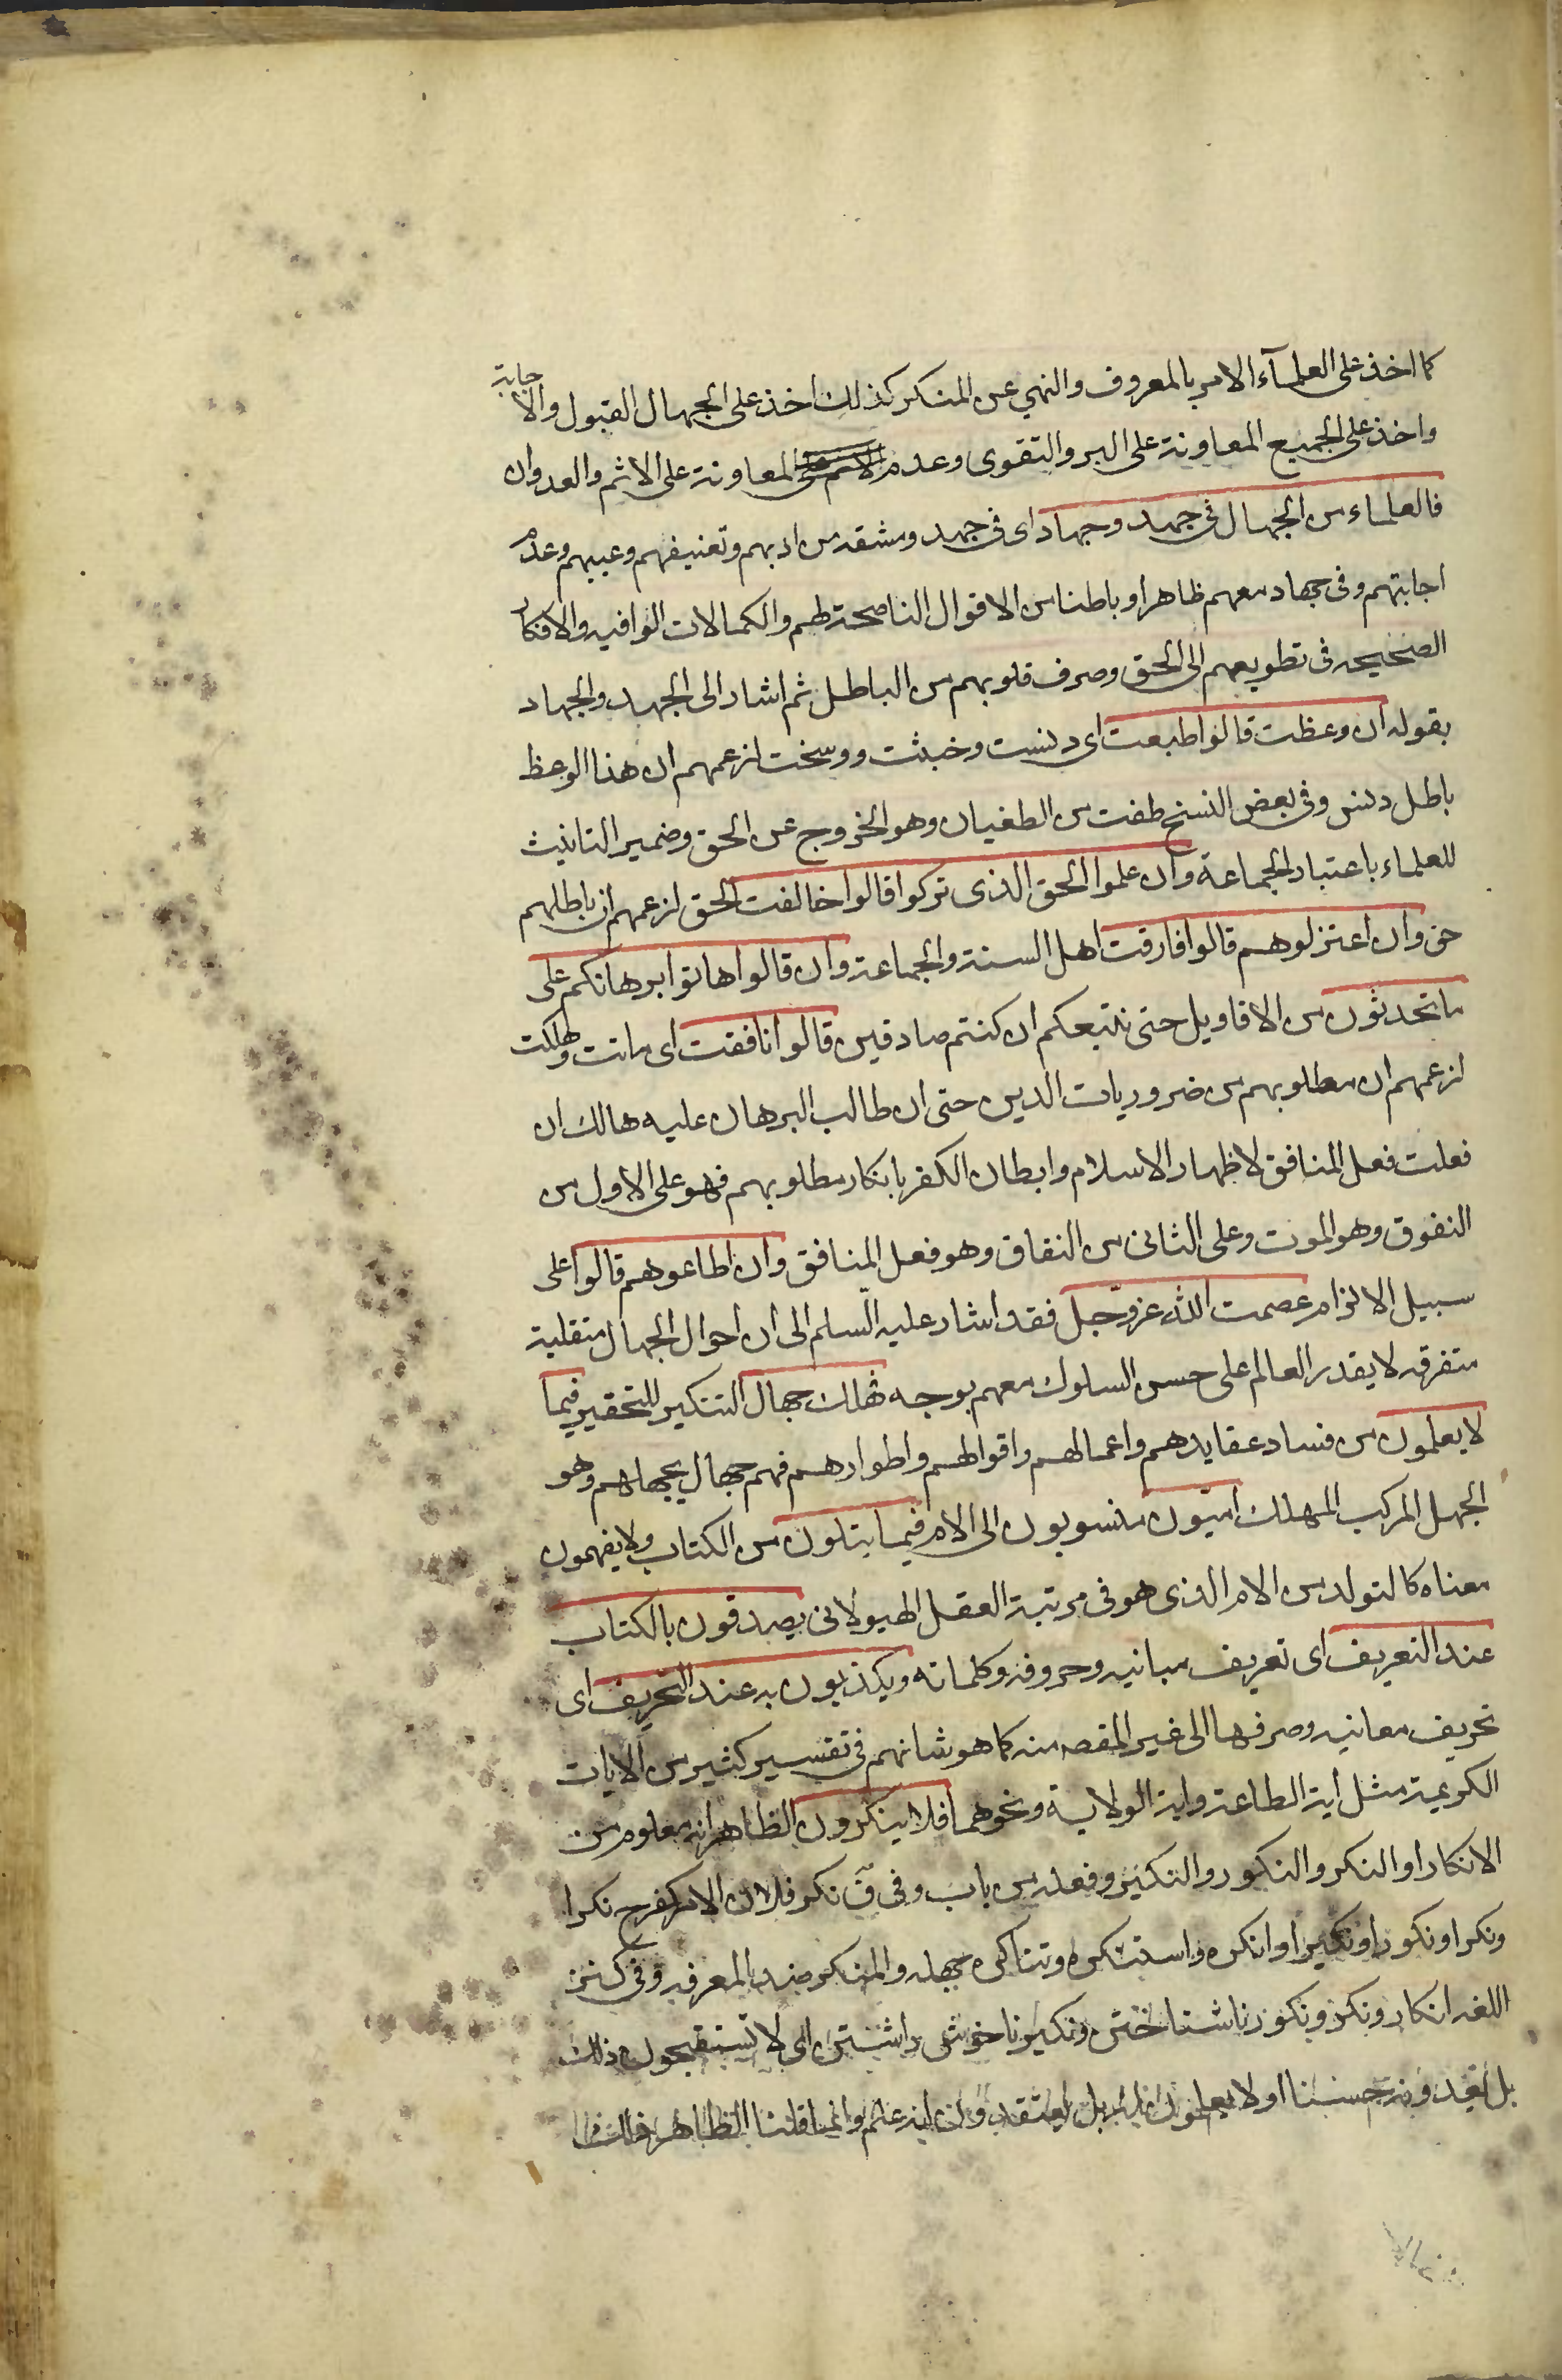 كما اخذ على العلمآء الامر بالمعروف والنهي عن المنكر كذلك اخذ على الجهال القبول والاجابة
واخذ على الجميع المعاونة على البر والتقوى وعدم المعاونة على الاثم والعدوان
فالعلماء من الجهال فى جهد وجهاد اى فى جهد ومشقه من ادبهم وتعنيفهم وعيبهم وعدم
اجابتهم وفى جهاد معهم ظاهرا وباطنا من الاقوال الناصحة لهم والكمالات الوافيه والافكار
الصحيحه فى تطويعهم الى الحق وصرف قلوبهم من الباطل ثم اشار الى الجهد والجهاد
بقوله ان وعظت قالوا طبعت اى دنست وخبثت ووسخت لزعمهم ان هذا الوعظ
باطل دنس وفى بعض النسخ طغت من الطغيان وهو الخروج عن الحق وضمير التانيث
للعلماء باعتبار الجماعة وان علموا الحق الذى تركوا قالوا خالفت الحق لزعمهم ان باطلهم
حق وان اعتزلوهم قالوا فارقت اهل السنة والجماعة وان قالوا هاتوا برهانكم على
ما تحدثون من الاقاويل حتى نتبعكم ان كنتم صادقين قالوا نافقت اى ماتت وهلكت
لزعمهم ان مطلوبهم من ضروريات الدين حتى ان طالب البرهان عليه هالك ان
فعلت فعل المنافق لاظهار الاسلام وابطان الكفر بانكار مطلوبهم فهو على الاول من
النفوق وهو الموت وعلى الثانى من النفاق وهو فعل المنافق وان اطاعوهم قالوا على
سبيل الالزام عصمت الله عز وجل فقد اشار عليه السلم الى ان احوال الجهال متقلبة
متفرقه لا يقدر العالم على حسن السلوك معهم بوجه فهلك جهال التنكير للتحقير فيما
لا يعلمون من فساد عقايدهم واعمالهم واقوالهم واطوارهم فهم جهال بجهلهم وهو
الجهل المركب المهلك اميون منسوبون الى الام فيما يتلون من الكتاب ولا يفهمون
معناه كالتولد من الام الذى هو فى مرتبة العقل الهيولانى يصدقون بالكتاب
عند التعريف اى تعريف مبانيه وحروفه وكلماته ويكذبون به عند التحريف اى
تحريف معانيه وصرفها الى غير المقصد منه كما هو شانهم فى تفسير كثير من الايات
الكريمة مثل اية الطاعة واية الولاية ونحوهما فلا ينكرون الظاهر انه معلوم من
الانكار او النكر والنكور والنكير وفعله من باب وفى ق نكر فلان الامر كفرح نكرا
ونكرا ونكورا ونكيرا وانكره واستنكره وتناكره جهله والمنكر ضد المعرفه وفى كنز
اللغه انكار ونكر ونكور ناشناختن ونكير ناخوشى داشتن اى لا تستقبحون ذلك
بل حسنا او لا يعلمون بل علم وانما قلنا الظاهر